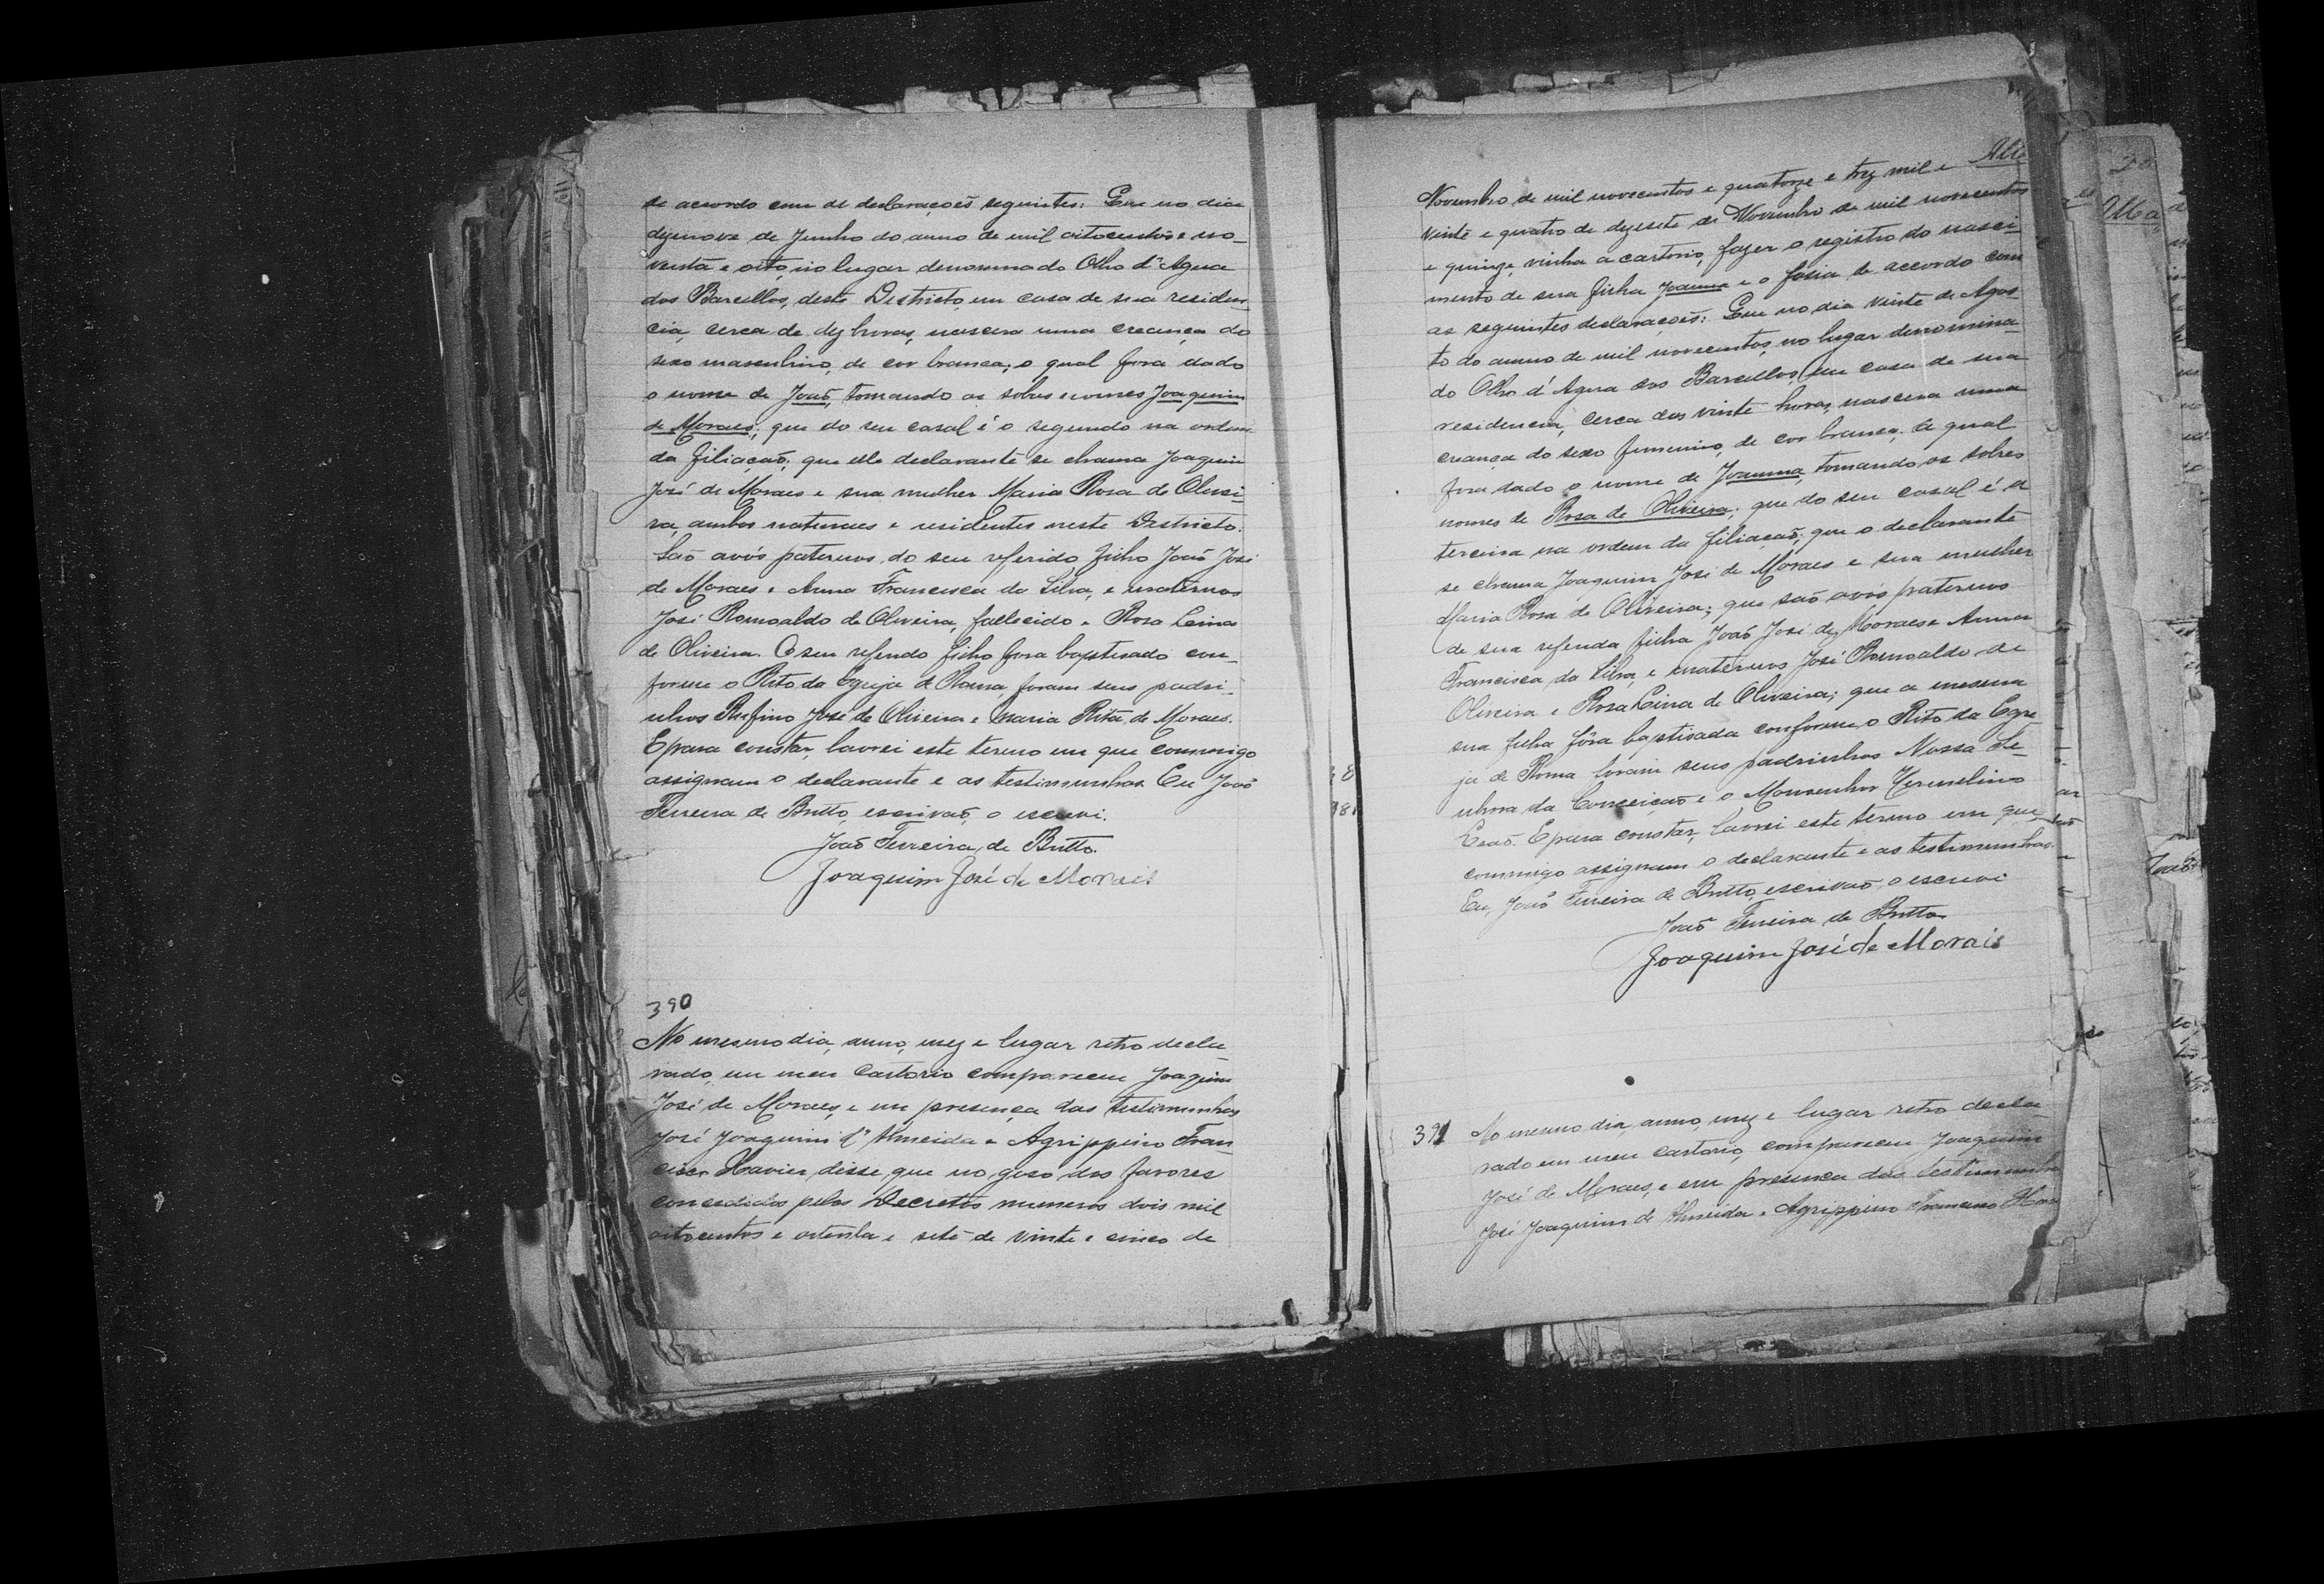 de accordo com as declarações seguintes: Que no dia
dezenove de Junho do anno de mil oitocentos e no-
venta e oito, no lugar denominado Olho d'Agua
dos Barcellos, deste Districto, em casa de sua residen-
cia, cerca de dez horas, nascera uma creança do
sexo masculino, de cor branca; o qual fora dado
o nome de João, tomando os sobres nomes Joaquim
de Moraes; que do seu casal é o segundo na ordem
da filiação; que elle declarante se chama Joaquim
José de Moraes e sua mulher Maria Rosa de Olivei-
ra, ambos naturaes e residentes neste Districto.
São avós paternos do seu referido filho João José
de Moraes e Anna Francisca da Silva, e maternos
José Romoaldo de Oliveira, fallecido e Rosa Leina
de Oliveira. O seu referido filho fora baptisado con-
forme o Rito da Egreja de Roma, foram seus padri-
nhos Rufino José de Oliveira e Maria Rita de Moraes.
E para constar, lavrei este termo em que commigo
assignam o declarante e as testimunhas. Eu João
Ferreira de Britto, escrivaõ, o escrevi.
João Ferreira de Britto.
Joaquim José de Morais
390
No mesmo dia, anno, mez e lugar retro decla-
rado, em meu Cartorio compareceu Joaquim
José de Moraes, e em presença das testimunhas
José Joaquim d'Almeida e Agrippino Fran-
cisco Xavier, disse que no goso dos favores
concedidos pelos Decretos numeros dois mil
oitocentos e oitenta e sete de vinte e cinco de
Novembro de mil novecentos e quatorze e trez mil e
vinte e quatro de dezesete de Novembro de mil novecentos
e quinze, vinha a cartorio, fazer o registro do nasci-
mento de sua filha Joanna e o fasia de accordo com
as seguintes declarações: Que no dia vinte de Agos-
to do anno de mil novecentos, no lugar denomina-
do Olho d'Agua dos Barcellos, em casa de sua
residencia, cerca das vinte horas, nascera uma
creança do sexo femenino, de cor branca, a qual
fora dado o nome de Joanna, tomando os sobres
nomes de Rosa de Oliveira; que do seu casal é a
terceira na ordem da filiação; que o declarante
se chama Joaquim José de Moraes e sua mulher
Maria Rosa de Oliveira; que saõ avós paternos
de sua referida filha João José de Moraes e Anna
Francisca da Silva, e maternos José Romoaldo de
Oliveira e Rosa Leina de Oliveira; que a mesma
sua filha fôra baptisada conforme o Rito da Egre-
ja de Roma foram seus padrinhos Nossa Se-
nhora da Conceição e o Monsenhor Hermelino
Leaõ. E para constar, lavrei este termo em que
commigo assignam o declarante e as testimunhas.
Eu, João Ferreira de Britto, escrivaõ, o escrevi
João Ferreira de Britto
Joaquim José de Morais
391
No mesmo dia, anno, mez e lugar retro decla-
rado em meu cartorio, compareceu Joaquim
José de Moraes, e em presença das testimunhas
José Joaquim de Almeida e Agrippino Francisco